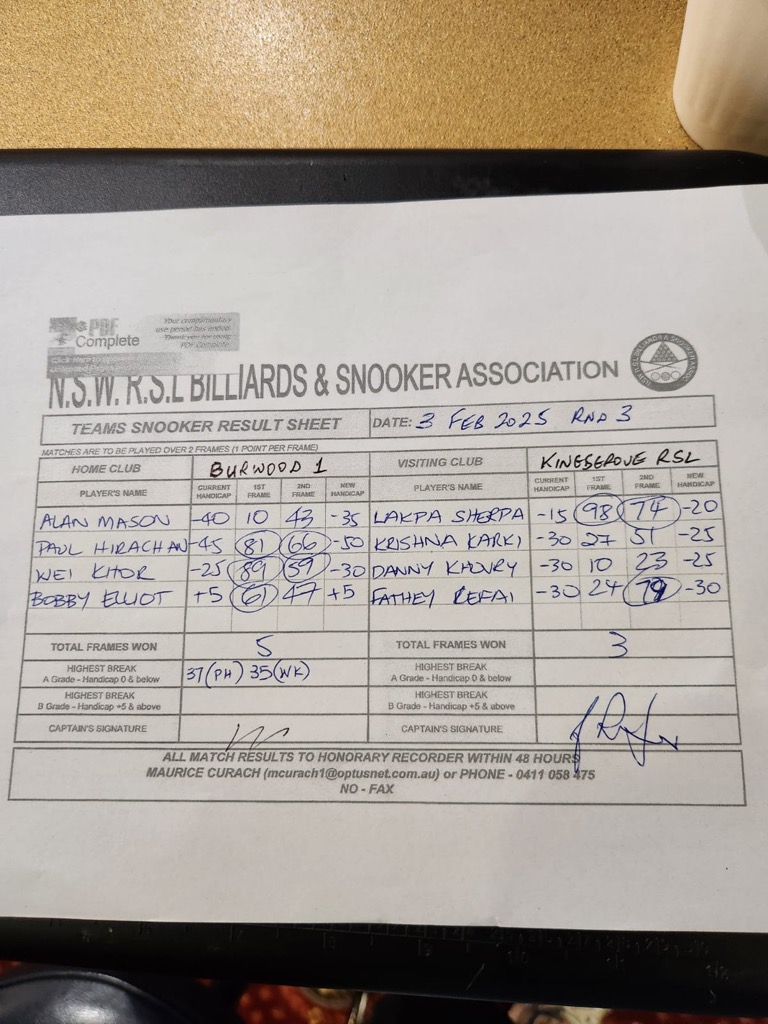 PDF
Complete
Your complimentary
use period has ended.
Thank you for using
PDF Complete.
N.S.W. R.S.L BILLIARDS & SNOOKER ASSOCIATION
TEAMS SNOOKER RESULT SHEET DATE: 3 FEB 2025 RND 3
MATCHES ARE TO BE PLAYED OVER 2 FRAMES (1 POINT PER FRAME)
HOME CLUB BURWOOD 1 VISITING CLUB KINGSGROVE RSL
PLAYER'S NAME CURRENT HANDICAP 1ST FRAME 2ND FRAME NEW HANDICAP PLAYER'S NAME CURRENT HANDICAP 1ST FRAME 2ND FRAME NEW HANDICAP
ALAN MASON -40 10 43 -35 LAKPA SHERPA -15 98 74 -20
PAUL HIRACHAN -45 81 66 -50 KRISHNA KARKI -30 27 51 -25
WEI KHOR -25 89 59 -30 DANNY KHOURY -30 10 23 -25
BOBBY ELLIOT +5 61 47 +5 FATHEY REFAI -30 24 79 -30
TOTAL FRAMES WON 5 TOTAL FRAMES WON 3
HIGHEST BREAK 37(PH) 35(WK) HIGHEST BREAK
A Grade - Handicap 0 & below A Grade - Handicap 0 & below
HIGHEST BREAK HIGHEST BREAK
B Grade - Handicap +5 & above B Grade - Handicap +5 & above
CAPTAIN'S SIGNATURE CAPTAIN'S SIGNATURE
ALL MATCH RESULTS TO HONORARY RECORDER WITHIN 48 HOURS
MAURICE CURACH (mcurach1@optusnet.com.au) or PHONE - 0411 058 475
NO - FAX